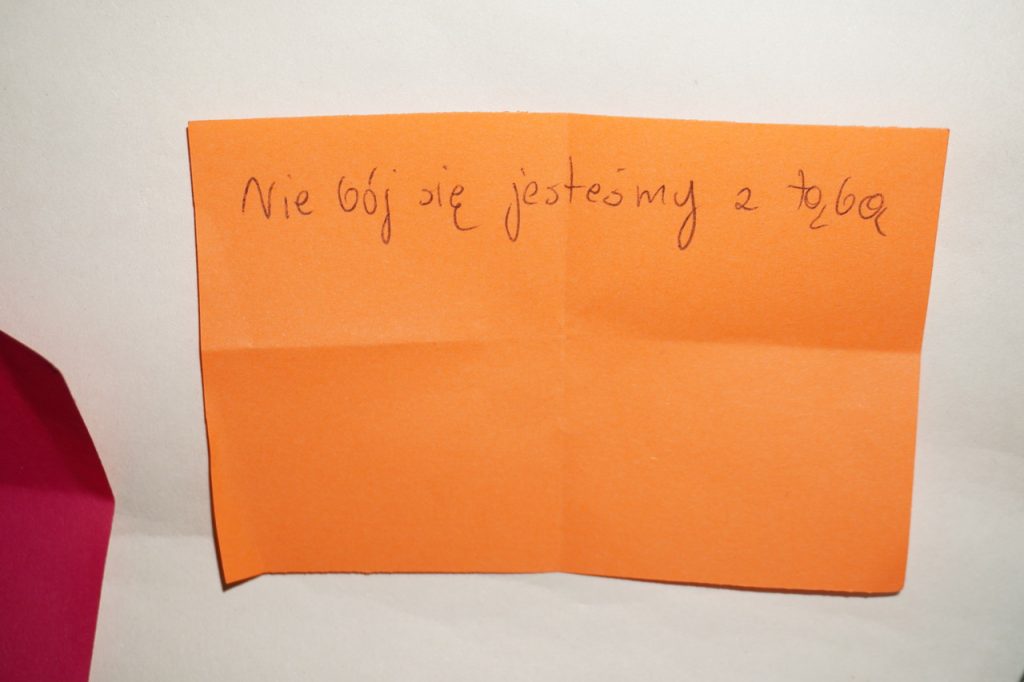 Nie bój się jesteśmy z tąbą